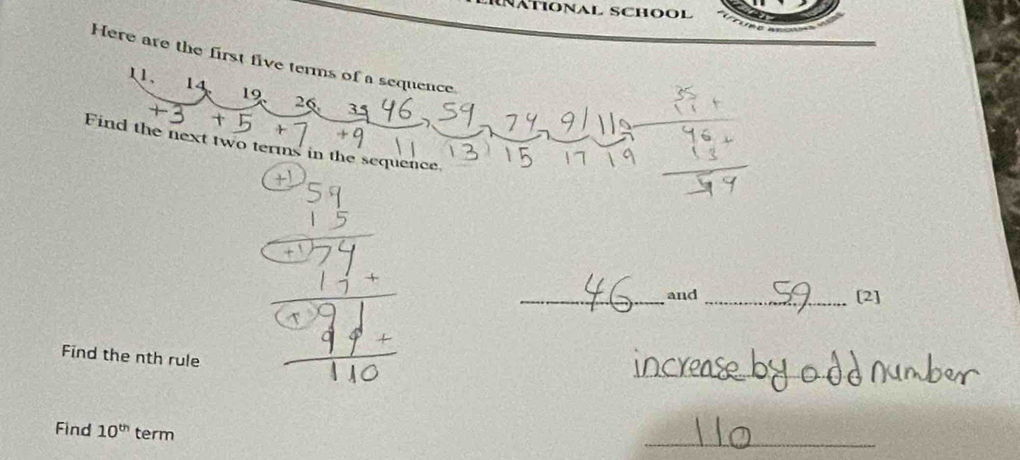 NATIONAL SCHOOL
Here are the first five terms of a sequence.
11, 14, 19, 26, 35 46, 59, 74, 91 110
+3 +5 +7 +9 11 13 15 17 19
35
11 +
46 +
13
59
Find the next two terms in the sequence.
+1 59
15
+1 74
17 +
91 +
110
46 and 59 [2]
Find the nth rule
increase by odd number
Find 10th term
110